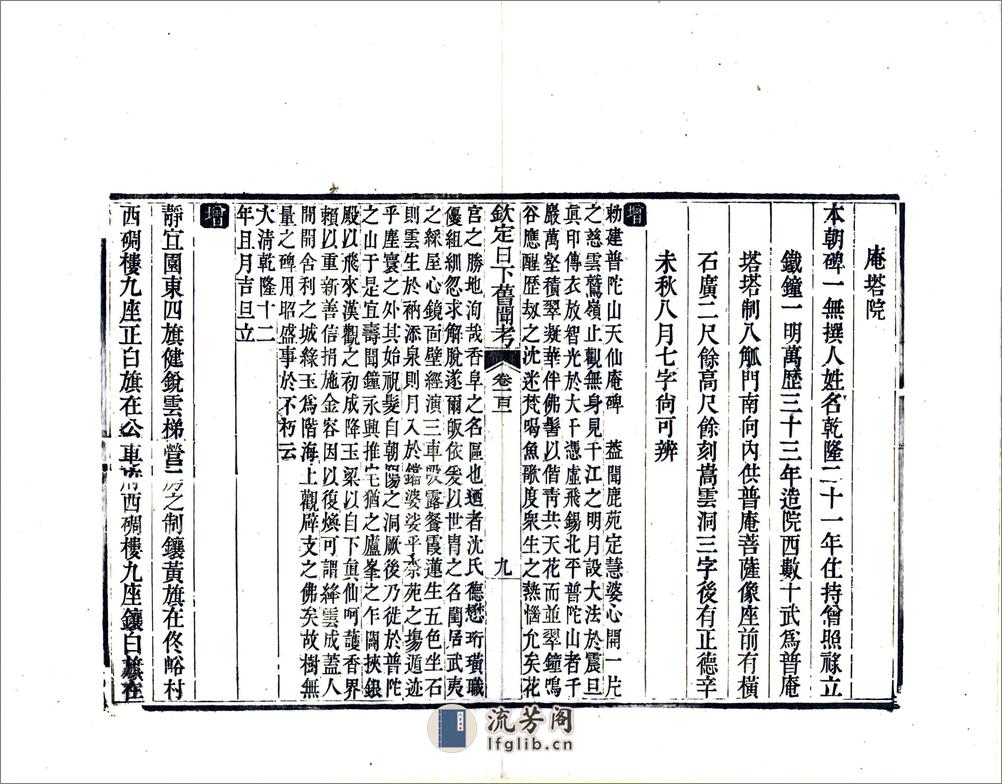 庵塔院
本朝碑一無撰人姓名乾隆二十一年住持僧照祿立
鐵鐘一明萬歷三十三年造院西數十武為普庵
塔塔制八觚門南向內供普庵菩薩像座前有橫
石廣二尺餘高尺餘刻嵩雲洞三字後有正德辛
未秋八月七字尙可辨
增
勅建普陀山天仙庵碑 蓋聞鹿苑定慧婆心開一片
之慈雲鷲嶺止觀無身見千江之明月設大法於震旦
眞印傳衣放智光於大千憑虛飛錫北平普陀山者千
巖萬壑積翠凝華伴佛髻以偕靑共天花而並翠鐘鳴
谷應醒歷刼之沈迷梵唱魚歌度衆生之熱惱允矣花
欽定日下舊聞考 卷一百 九
宮之勝地洵哉香阜之名區也迺者沈氏德懋珩璜職
優組紃忽求解脫遂爾皈依爰以世胄之名閨居武夷
之綵屋心鏡面壁經演三車吸露餐霞蓮生五色坐石
則雲生於衲添泉則月入於鐺婆娑乎柰苑之塲遁迹
乎塵寰之外其始祝髮自朝陽之洞厥後乃徙於普陀
之山于是宜壽聞鐘永興推宅猶之廬峯之乍闢挾銀
殿以飛來漢觀之初成降玉梁以自下眞仙呵護香界
賴以重新善信捐施金容因以復煥可謂絳雲成蓋人
間開舍利之城綠玉為階海上觀辟支之佛矣故樹無
量之碑用昭盛事於不朽云
大清乾隆十二
年且月吉旦立
增
靜宜園東四旗健銳雲梯營房之制鑲黃旗在佟峪村
西碉樓九座正白旗在公車府西碉樓九座鑲白旗在
流芳阁
lfglib.cn